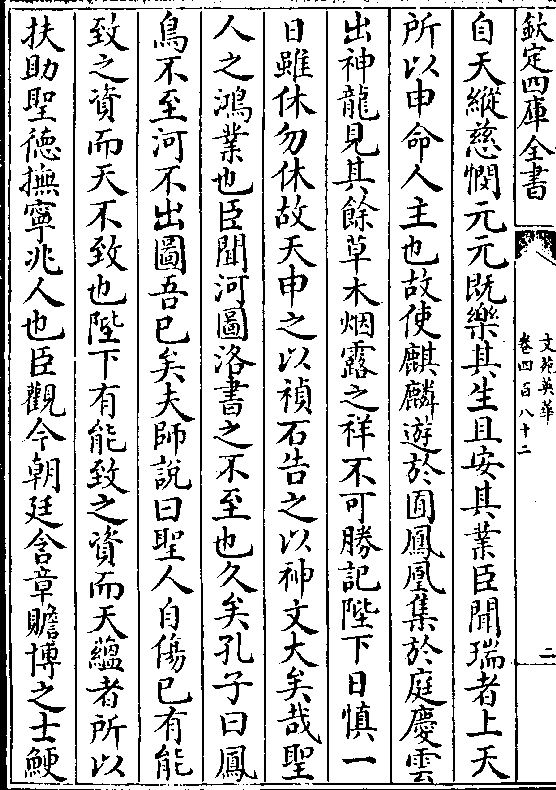 欽定四庫全書
文苑英華
卷四百八十二
二
自天縱慈憫元元既樂其生且安其業臣聞瑞者上天
所以申命人主也故使麒麟遊於囿鳳凰集於庭慶雲
出神龍見其餘草木烟露之祥不可勝記陛下日慎一
日雖休勿休故天申之以禎石告之以神文大矣哉聖
人之鴻業也臣聞河圖洛書之不至也久矣孔子曰鳳
鳥不至河不出圖吾已矣夫師說曰聖人自傷已有能
致之資而天不致也陛下有能致之資而天蘊者所以
扶助聖德撫寧兆人也臣觀今朝廷含章贍博之士鯁